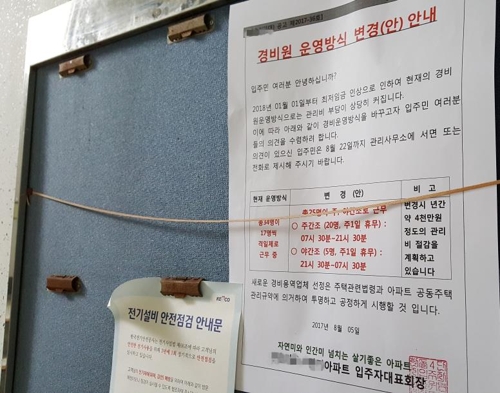 공고 제2017-36호
경비원 운영방식 변경(안) 안내
입주민 여러분 안녕하십니까?
2018년 01월 01일부터 최저임금 인상으로 인하여 현재의 경비
원운영방식으로는 관리비 부담이 상당히 커집니다.
이에 따라 아래와 같이 경비운영방식을 바꾸고자 입주민 여러분
들의 의견을 수렴하려 합니다.
의견이 있으신 입주민은 8월 22일까지 관리사무소에 서면 또는
전화로 제시해 주시기 바랍니다.
현재 운영방식 변 경 (안) 비 고
총34명이
17명씩
격일제로
근무 중
총25명이 주, 야간조로 근무
○ 주간조 (20명, 주1일 휴무) :
07시 30분~21시 30분
○ 야간조 (5명, 주1일 휴무) :
21시 30분~07시 30분
변경시 년간
약 4천만원
정도의 관리
비 절감을
계획하고
있습니다
새로운 경비용역업체 선정은 주택관련법령과 아파트 공동주택
관리규약에 의거하여 투명하고 공정하게 시행할 것 입니다.
2017년 8월 05일
자연미와 인간미 넘치는 살기좋은 아파트
아파트 입주자대표회장
KEPCO
전기설비 안전점검 안내문